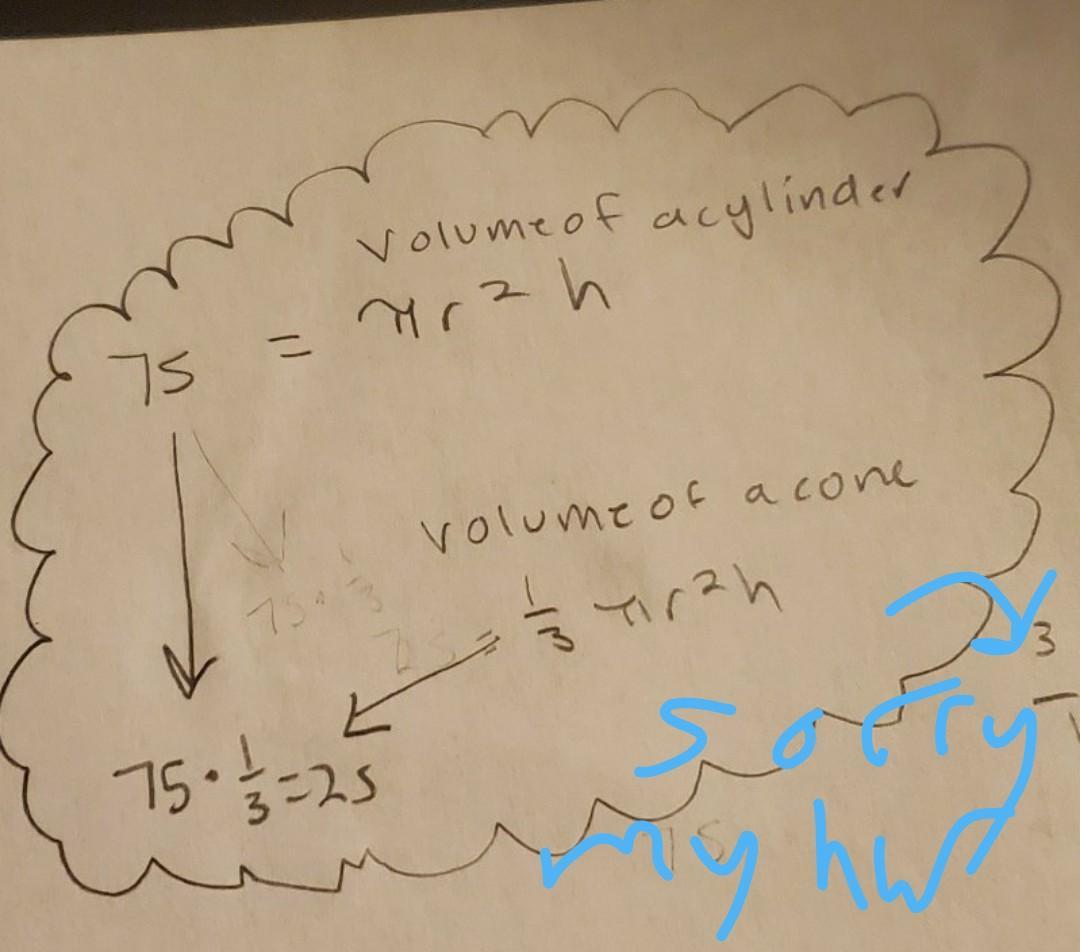 volume of a cylinder
75 = πr² h
volume of a cone
75 · 1/3
= 1/3 πr²h
75 · 1/3 = 25
3
sorry
my hw
15